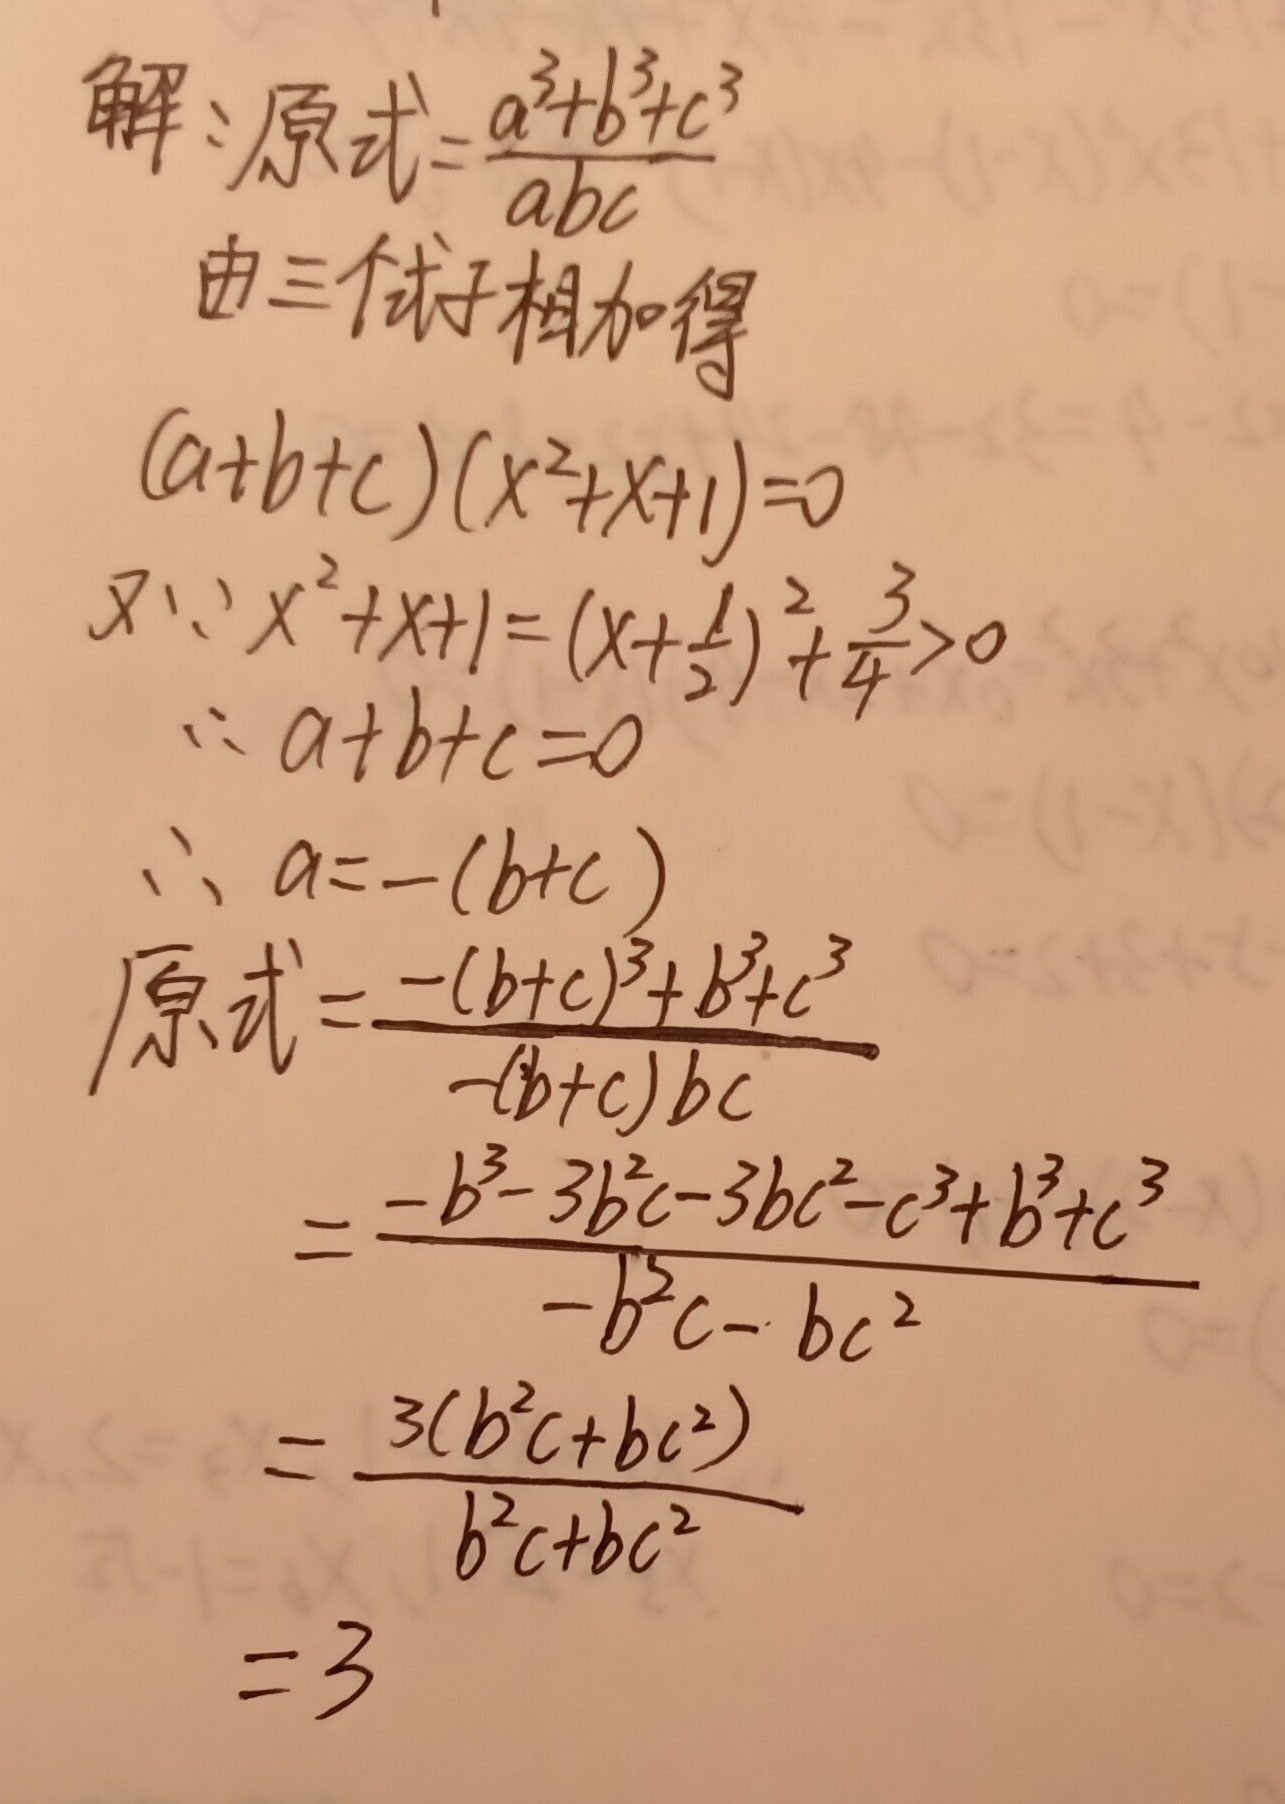 解:原式=\frac{a³+b³+c³}{abc}
由三个式子相加得
(a+b+c)(x²+x+1)=0
又∵x²+x+1=(x+\frac{1}{2})²+\frac{3}{4}>0
∴a+b+c=0
∴a=-(b+c)
原式=\frac{-(b+c)³+b³+c³}{-(b+c)bc}
=\frac{-b³-3b²c-3bc²-c³+b³+c³}{-b²c-bc²}
=\frac{3(b²c+bc²)}{b²c+bc²}
=3